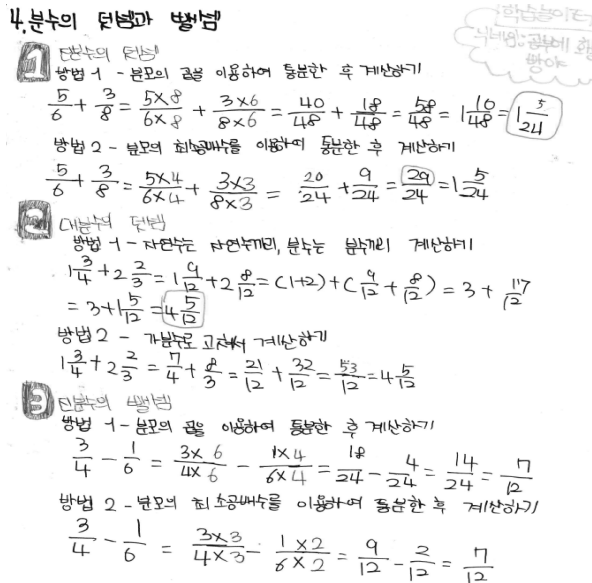 4. 분수의 덧셈과 뺄셈
1 진분수의 덧셈
방법 1 - 분모의 곱을 이용하여 통분한 후 계산하기
5/6 + 3/8 = 5×8/6×8 + 3×6/8×6 = 40/48 + 18/48 = 58/48 = 1 10/48 = 1 5/24
방법 2 - 분모의 최소공배수를 이용하여 통분한 후 계산하기
5/6 + 3/8 = 5×4/6×4 + 3×3/8×3 = 20/24 + 9/24 = 29/24 = 1 5/24
2 대분수의 덧셈
방법 1 - 자연수는 자연수끼리, 분수는 분수끼리 계산하기
1 3/4 + 2 2/3 = 1 9/12 + 2 8/12 = (1+2) + (9/12 + 8/12) = 3 + 17/12
= 3 + 1 5/12 = 4 5/12
방법 2 - 가분수로 고쳐서 계산하기
1 3/4 + 2 2/3 = 7/4 + 8/3 = 21/12 + 32/12 = 53/12 = 4 5/12
3 진분수의 뺄셈
방법 1 - 분모의 곱을 이용하여 통분한 후 계산하기
3/4 - 1/6 = 3×6/4×6 - 1×4/6×4 = 18/24 - 4/24 = 14/24 = 7/12
방법 2 - 분모의 최소공배수를 이용하여 통분한 후 계산하기
3/4 - 1/6 = 3×3/4×3 - 1×2/6×2 = 9/12 - 2/12 = 7/12